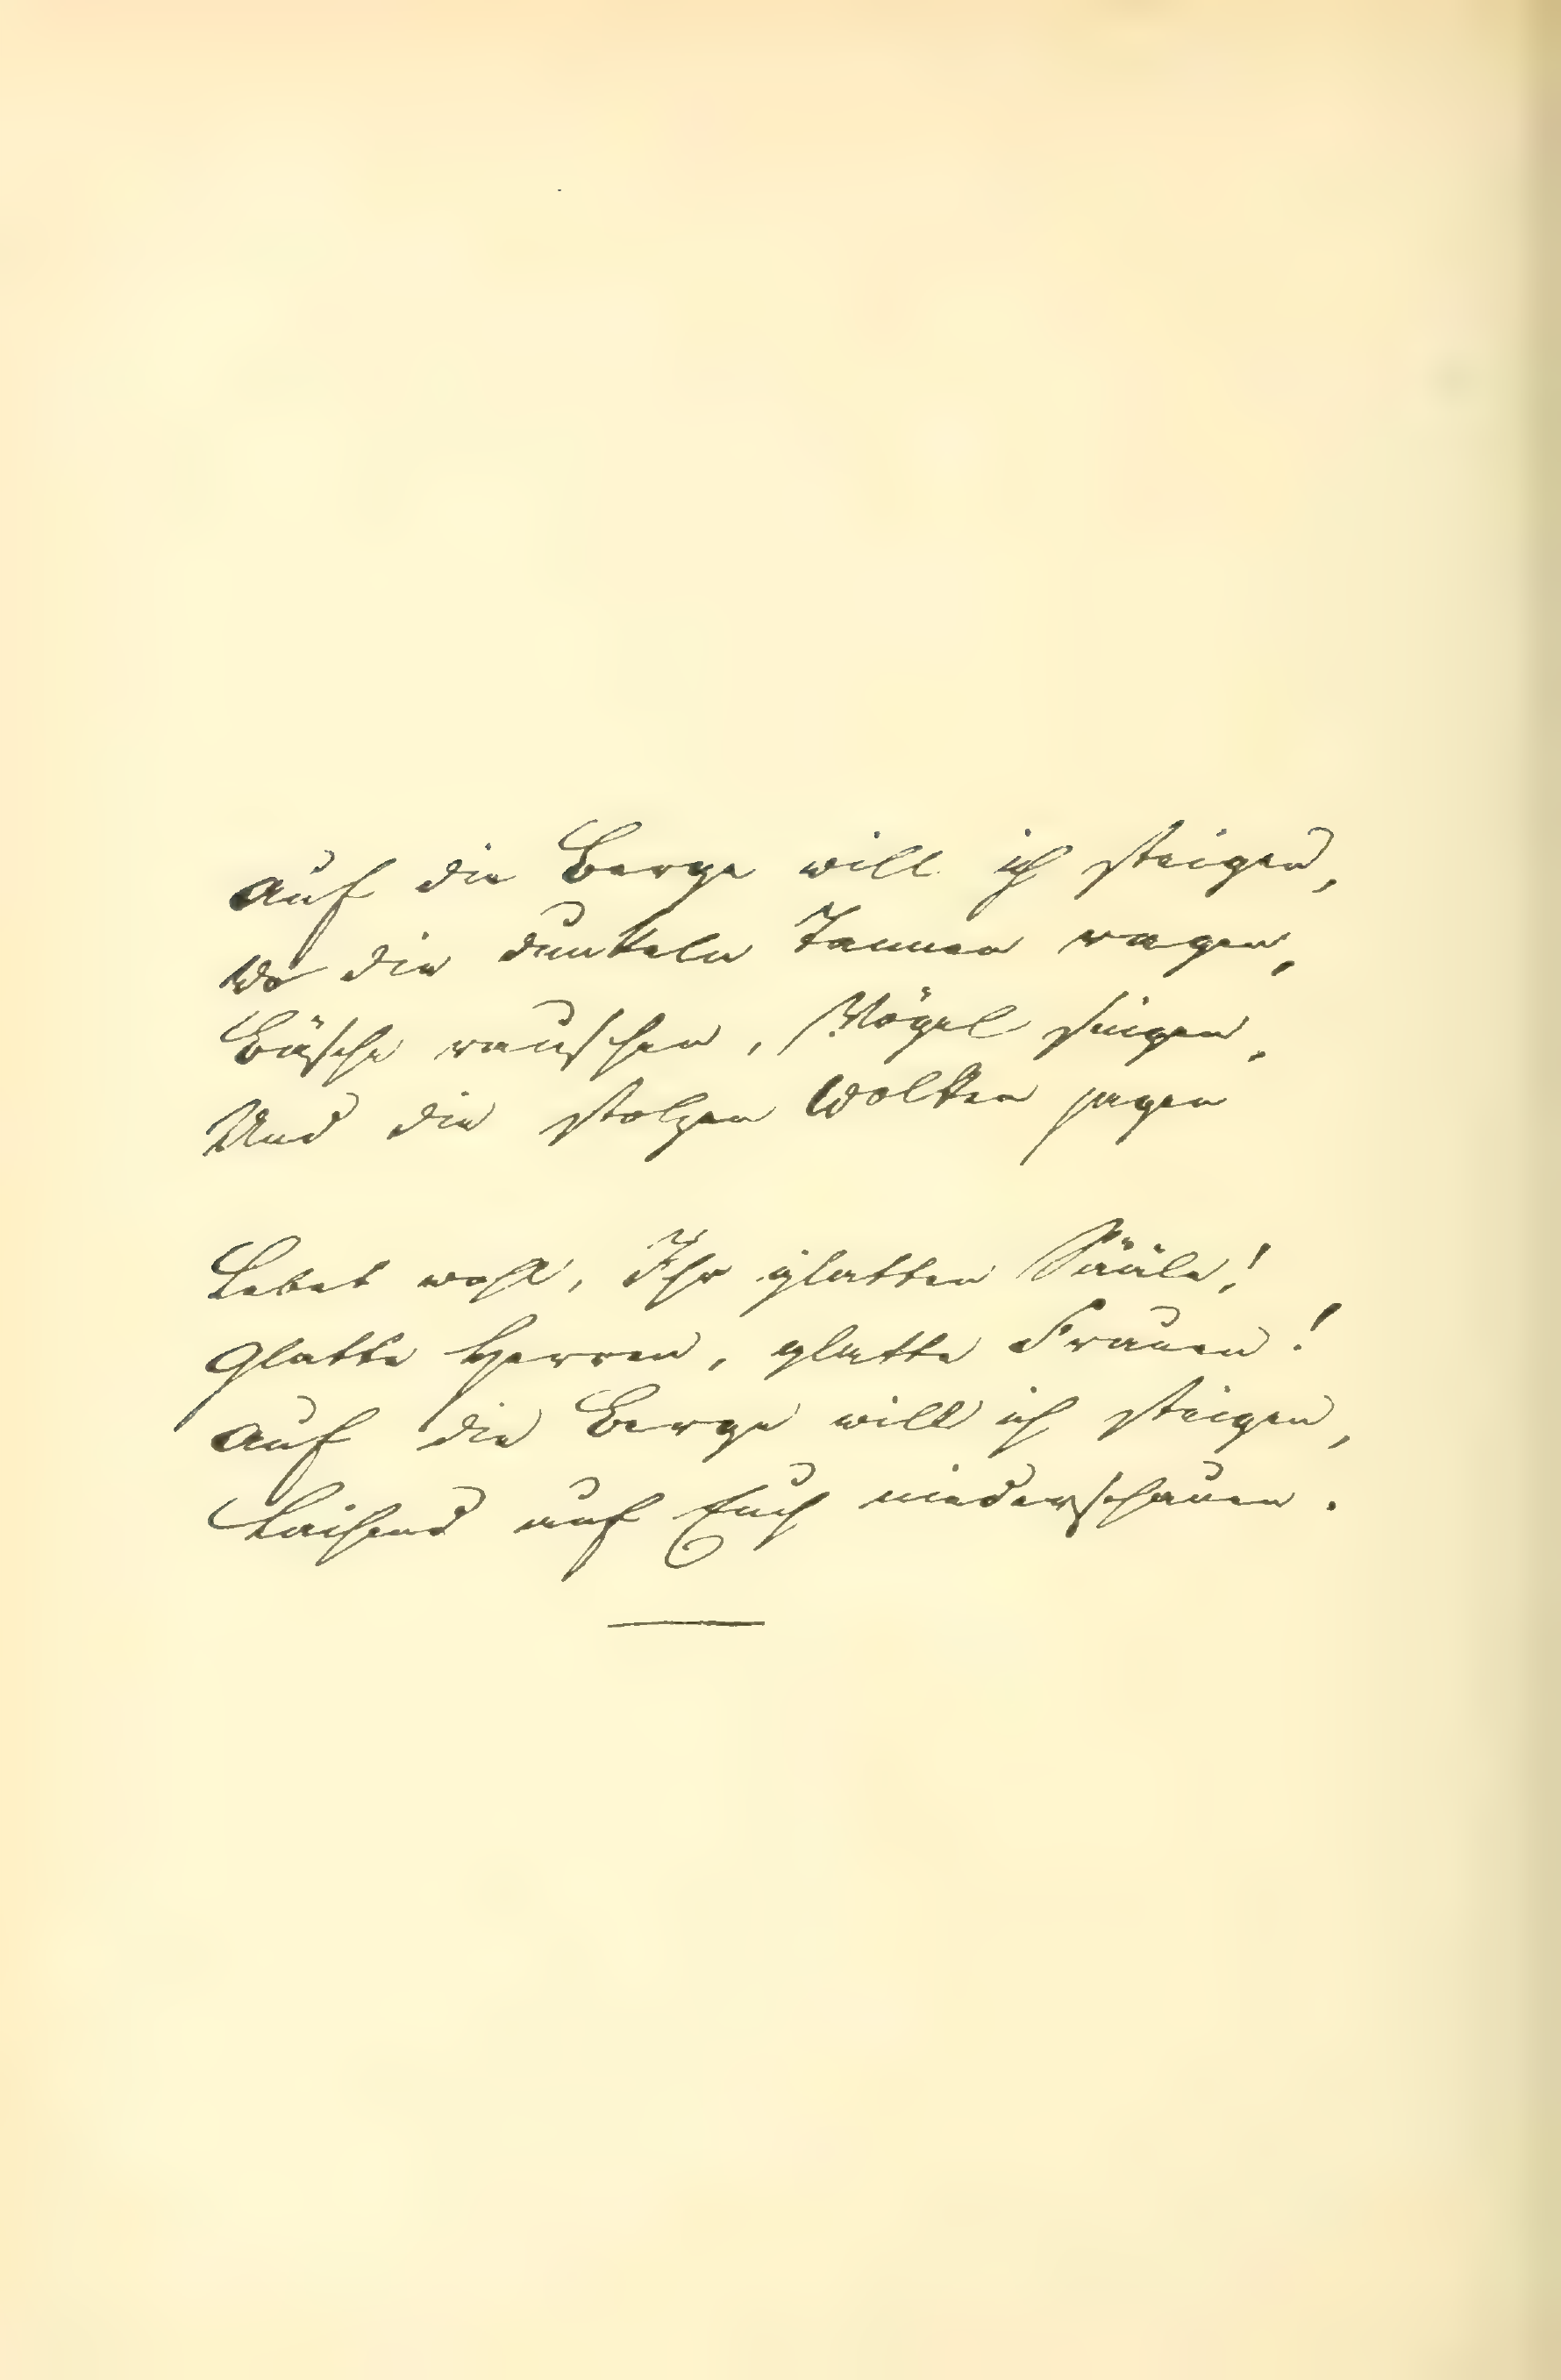 Auf die Berge will ich steigen,
Wo die dunkeln Tannen ragen,
Büsche rauschen, Vögel singen,
Und die stolzen Wolken jagen
Lebet wohl, Ihr glatten Sääle!
Glatte Herren, glatte Frauen!
Auf die Berge will ich steigen,
Lachend auf Euch niederschauen.